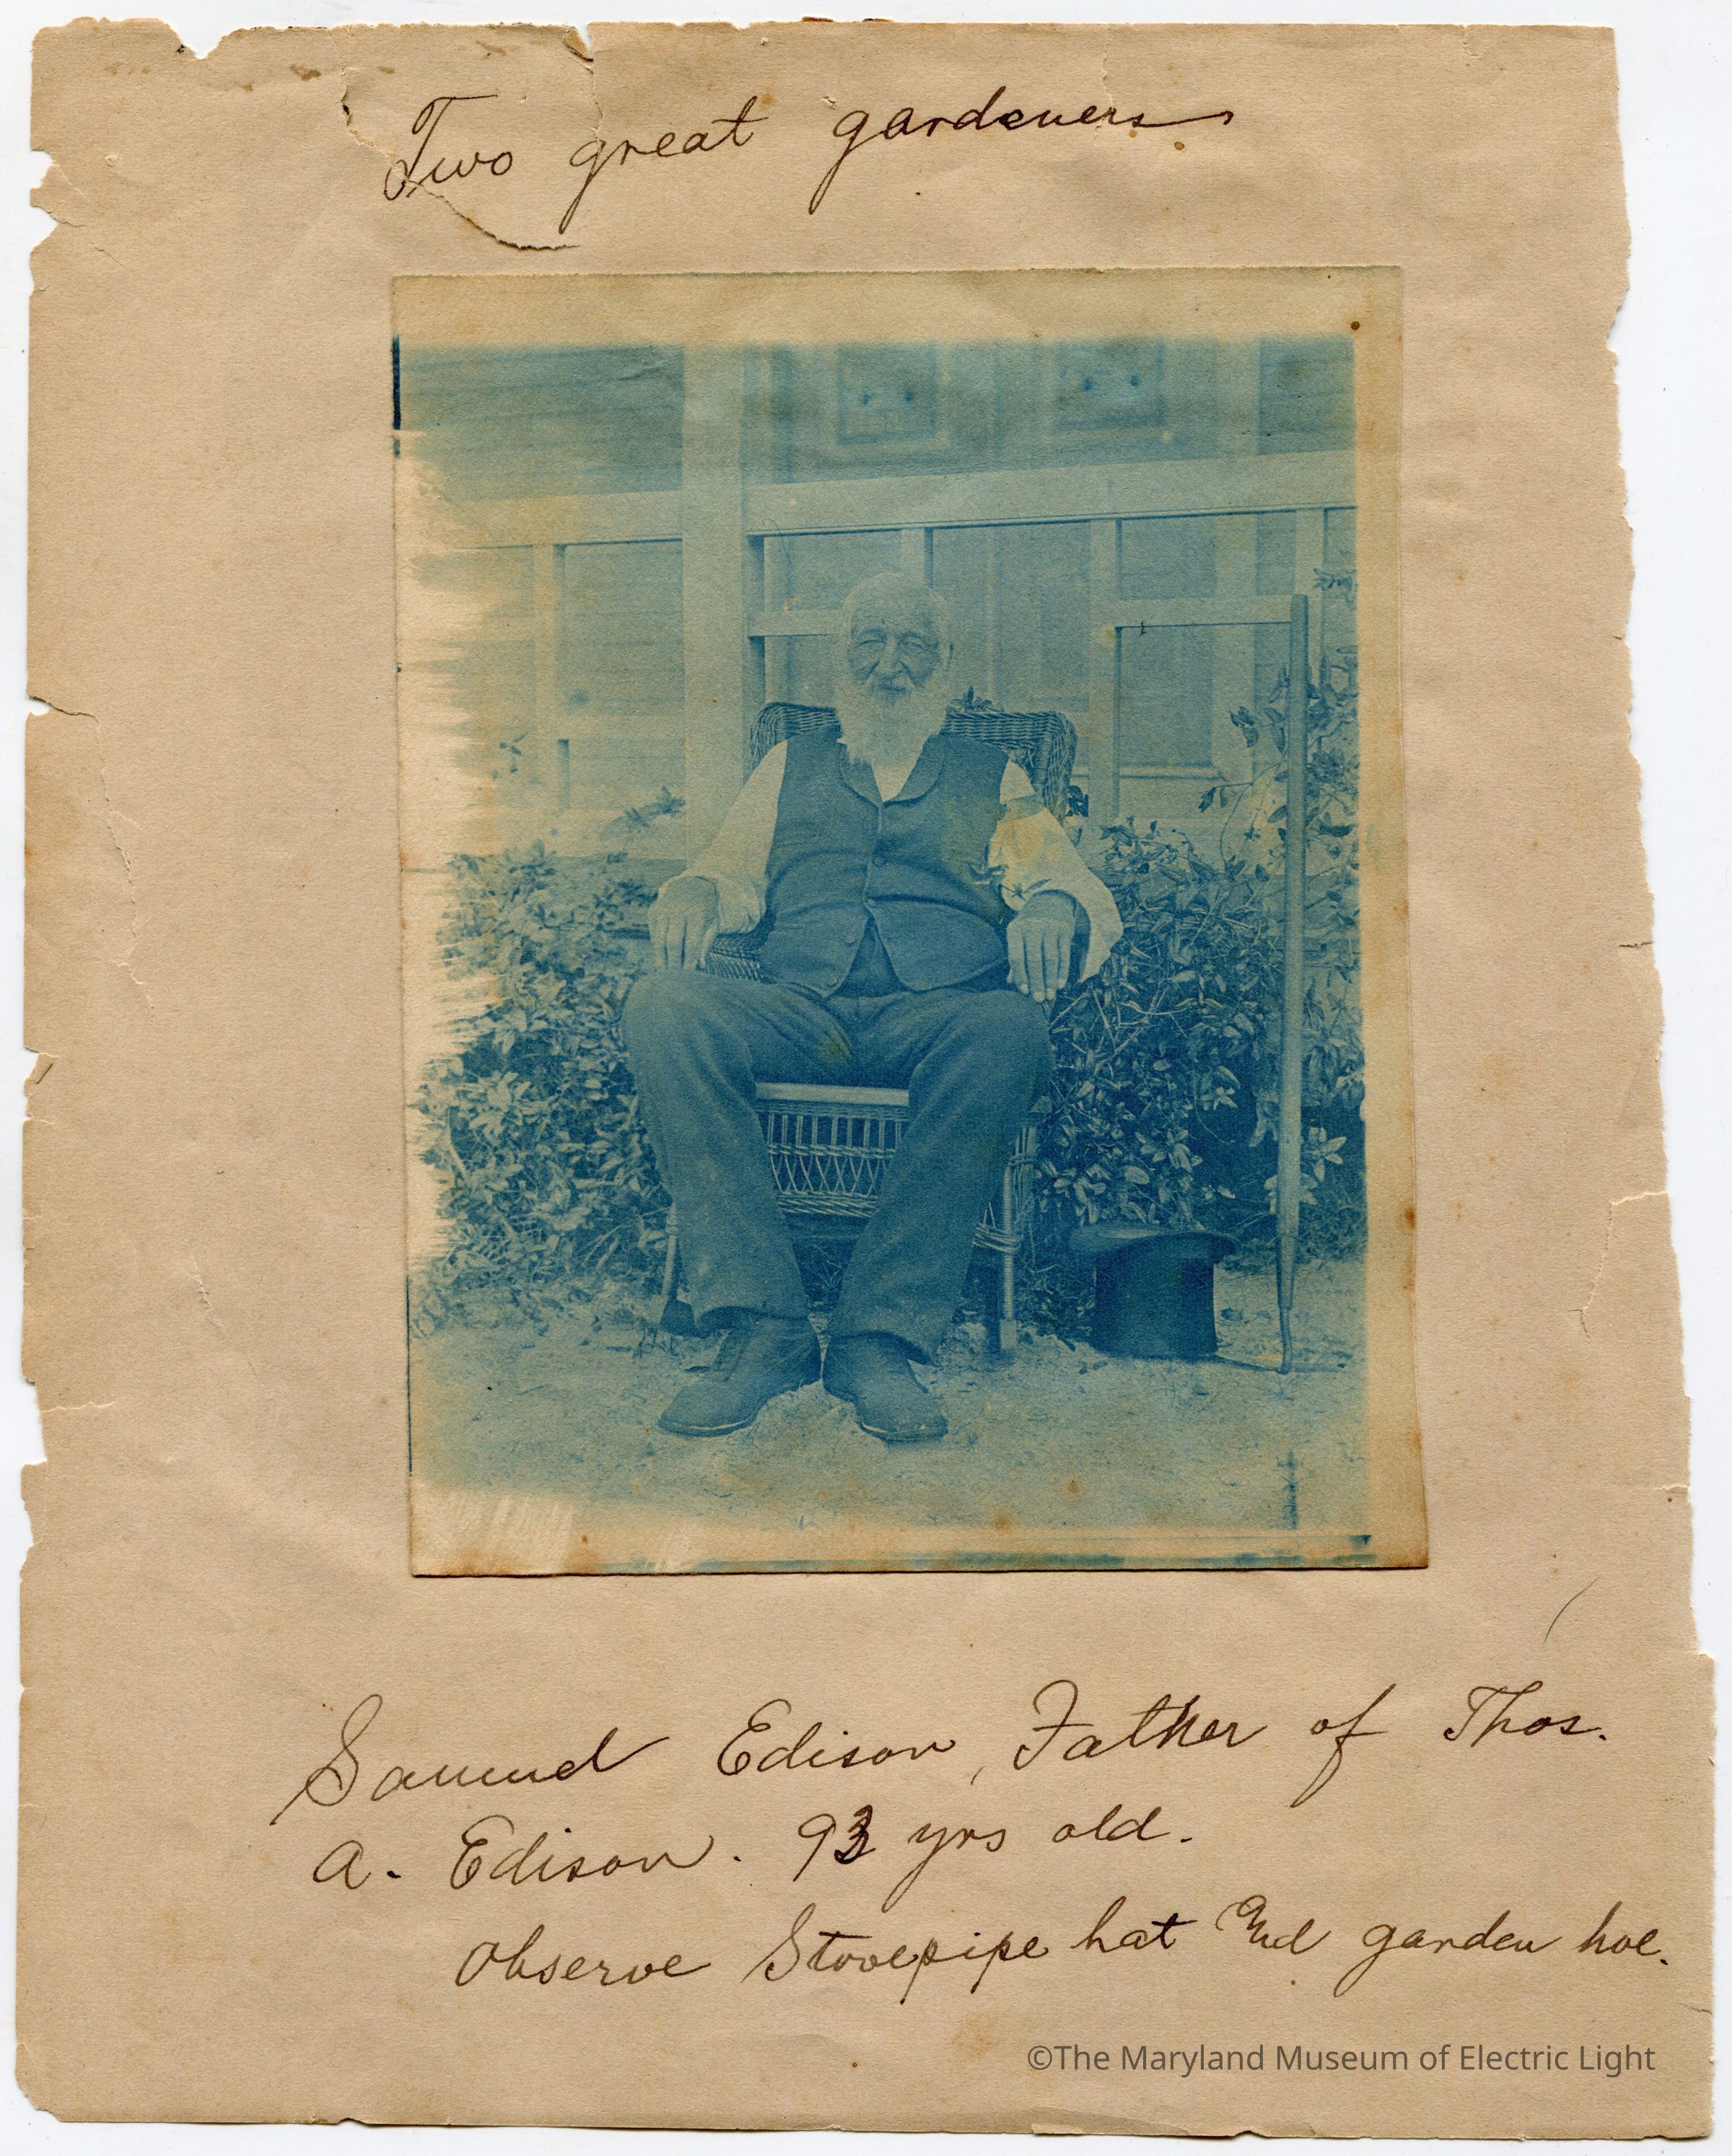 Two great gardeners
Samuel Edison, Father of Thos.
A. Edison. 93 yrs old.
Observe Stovepipe hat and garden hoe.
©The Maryland Museum of Electric Light